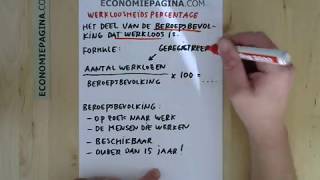 ECONOMIEPAGINA.COM
WERKLOOSHEIDSPERCENTAGE
HET DEEL VAN DE BEROEPSBEVOL-
KING DAT WERKLOOS IS.
FORMULE: GEREGISTREER
AANTAL WERKLOZEN
BEROEPSBEVOLKING × 100 = ......
BEROEPSBEVOLKING:
- OP ZOEK NAAR WERK
- DE MENSEN DIE WERKEN
- BESCHIKBAAR
- OUDER DAN 15 JAAR!